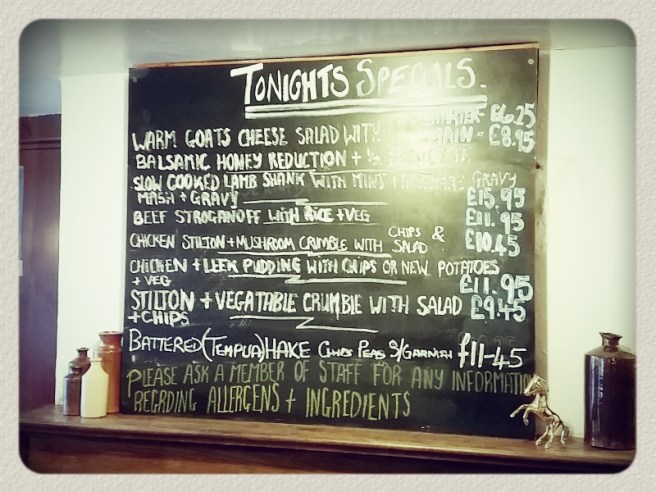 TONIGHTS SPECIALS.
STARTER- £6.25
WARM GOATS CHEESE SALAD WITH MAIN- £8.95
BALSAMIC HONEY REDUCTION +
SLOW COOKED LAMB SHANK WITH MINT + GRAVY
MASH + GRAVY £15.95
BEEF STROGANOFF WITH RICE + VEG £11.95
CHICKEN STILTON + MUSHROOM CRUMBLE WITH CHIPS & SALAD £10.45
CHICKEN + LEEK PUDDING WITH CHIPS OR NEW POTATOES
+ VEG £11.95
STILTON + VEGATABLE CRUMBLE WITH SALAD £9.45
+ CHIPS
BATTERED (TEMPUA) HAKE CHIPS PEAS S/GARNISH £11-45
PLEASE ASK A MEMBER OF STAFF FOR ANY INFORMATION
REGRDING ALLERGENS + INGREDIENTS